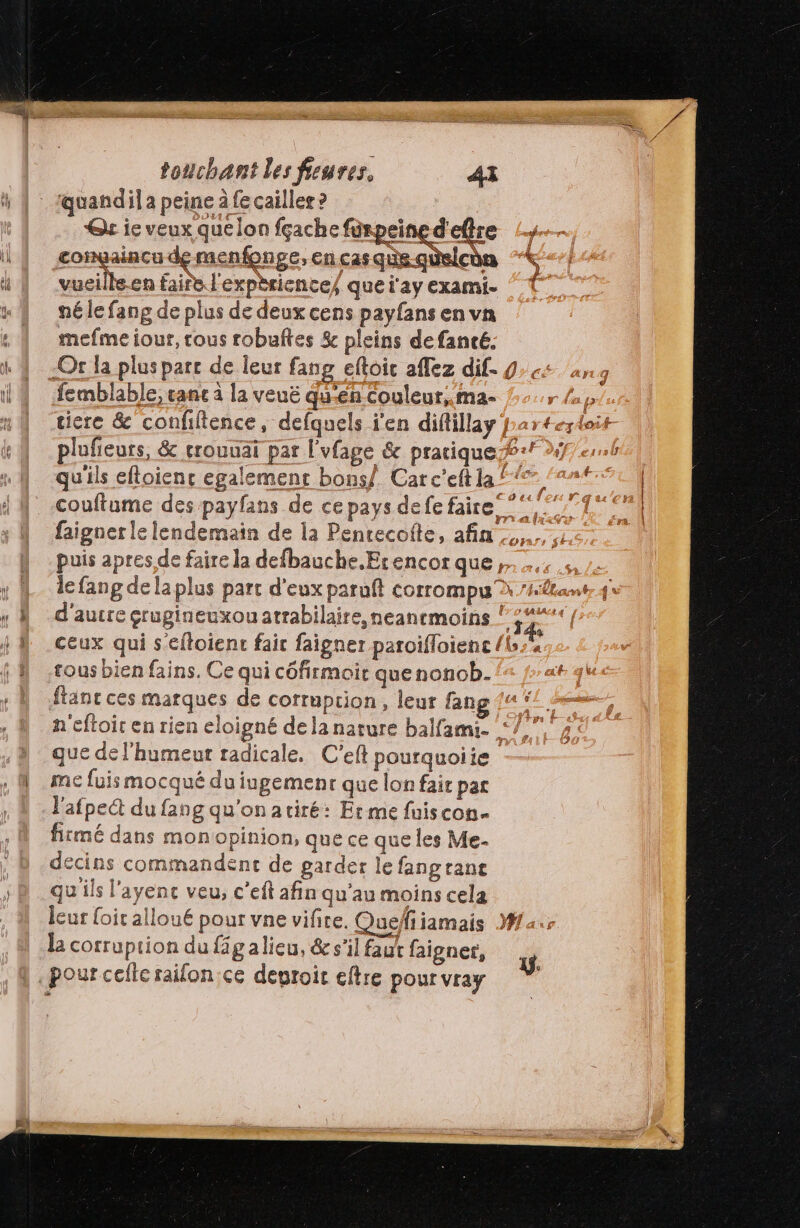 touchant les fieures, 41
quand il a peine à se cailler?
Or ie veux que lon sçache sur peine d'estre
conuaincu de mensonge, en cas que quelcùn
vueille en faire l'expèrience, que i'ay exami-
né le sang de plus de deux cens paysans en vn
mesme iour, tous robustes & pleins de santé.
Or la plus part de leur sang estoit assez dis-
semblable, tant à la veuë qu'en couleur, ma-
tiere & consistence, desquels i'en distillay
plusieurs, & trouuai par l'vsage & pratique
qu'ils estoient egalement bons. Car c'est la
coustume des paysans de ce pays de se faire
saigner le lendemain de la Pentecoste, afin
puis apres de faire la desbauche. Et encor que
le sang de la plus part d'eux parust corrompu
d'autre çrugineux ou atrabilaire, neantmoins
ceux qui s'estoient fait saigner paroissoient
tous bien sains. Ce qui cõfirmoit que nonob-
stant ces marques de corruption, leur sang
n'estoit en rien eloigné de la nature balsami-
que de l'humeur radicale. C'est pourquoi ie
me suis mocqué du iugement que lon fait par
l'aspect du sang qu'on a tiré: Et me suis con-
firmé dans mon opinion, que ce que les Me-
decins commandent de garder le sang tant
qu'ils l'ayent veu, c'est afin qu'au moins cela
leur soit alloué pour vne visite. Que si iamais
la corruption du sãg a lieu, & s'il faut saigner,
pour ceste raison ce deuroit estre pour vray